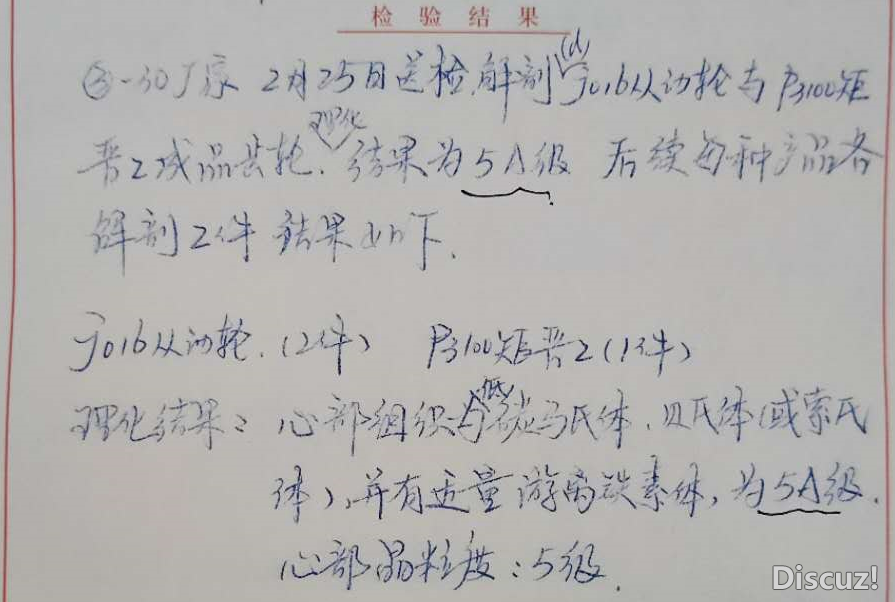 检验结果
2月25日送检,解剖(d)J016从动轮与P3100矩
晋2成品齿轮.理化结果为5A级 后续每种产品各
解剖2件 结果如下.
J016从动轮.(2件) P3100矩晋2(1件)
理化结果: 心部组织为低碳马氏体.贝氏体(或索氏
体),并有适量游离铁素体,为5A级.
心部晶粒度:5级.
Discuz!